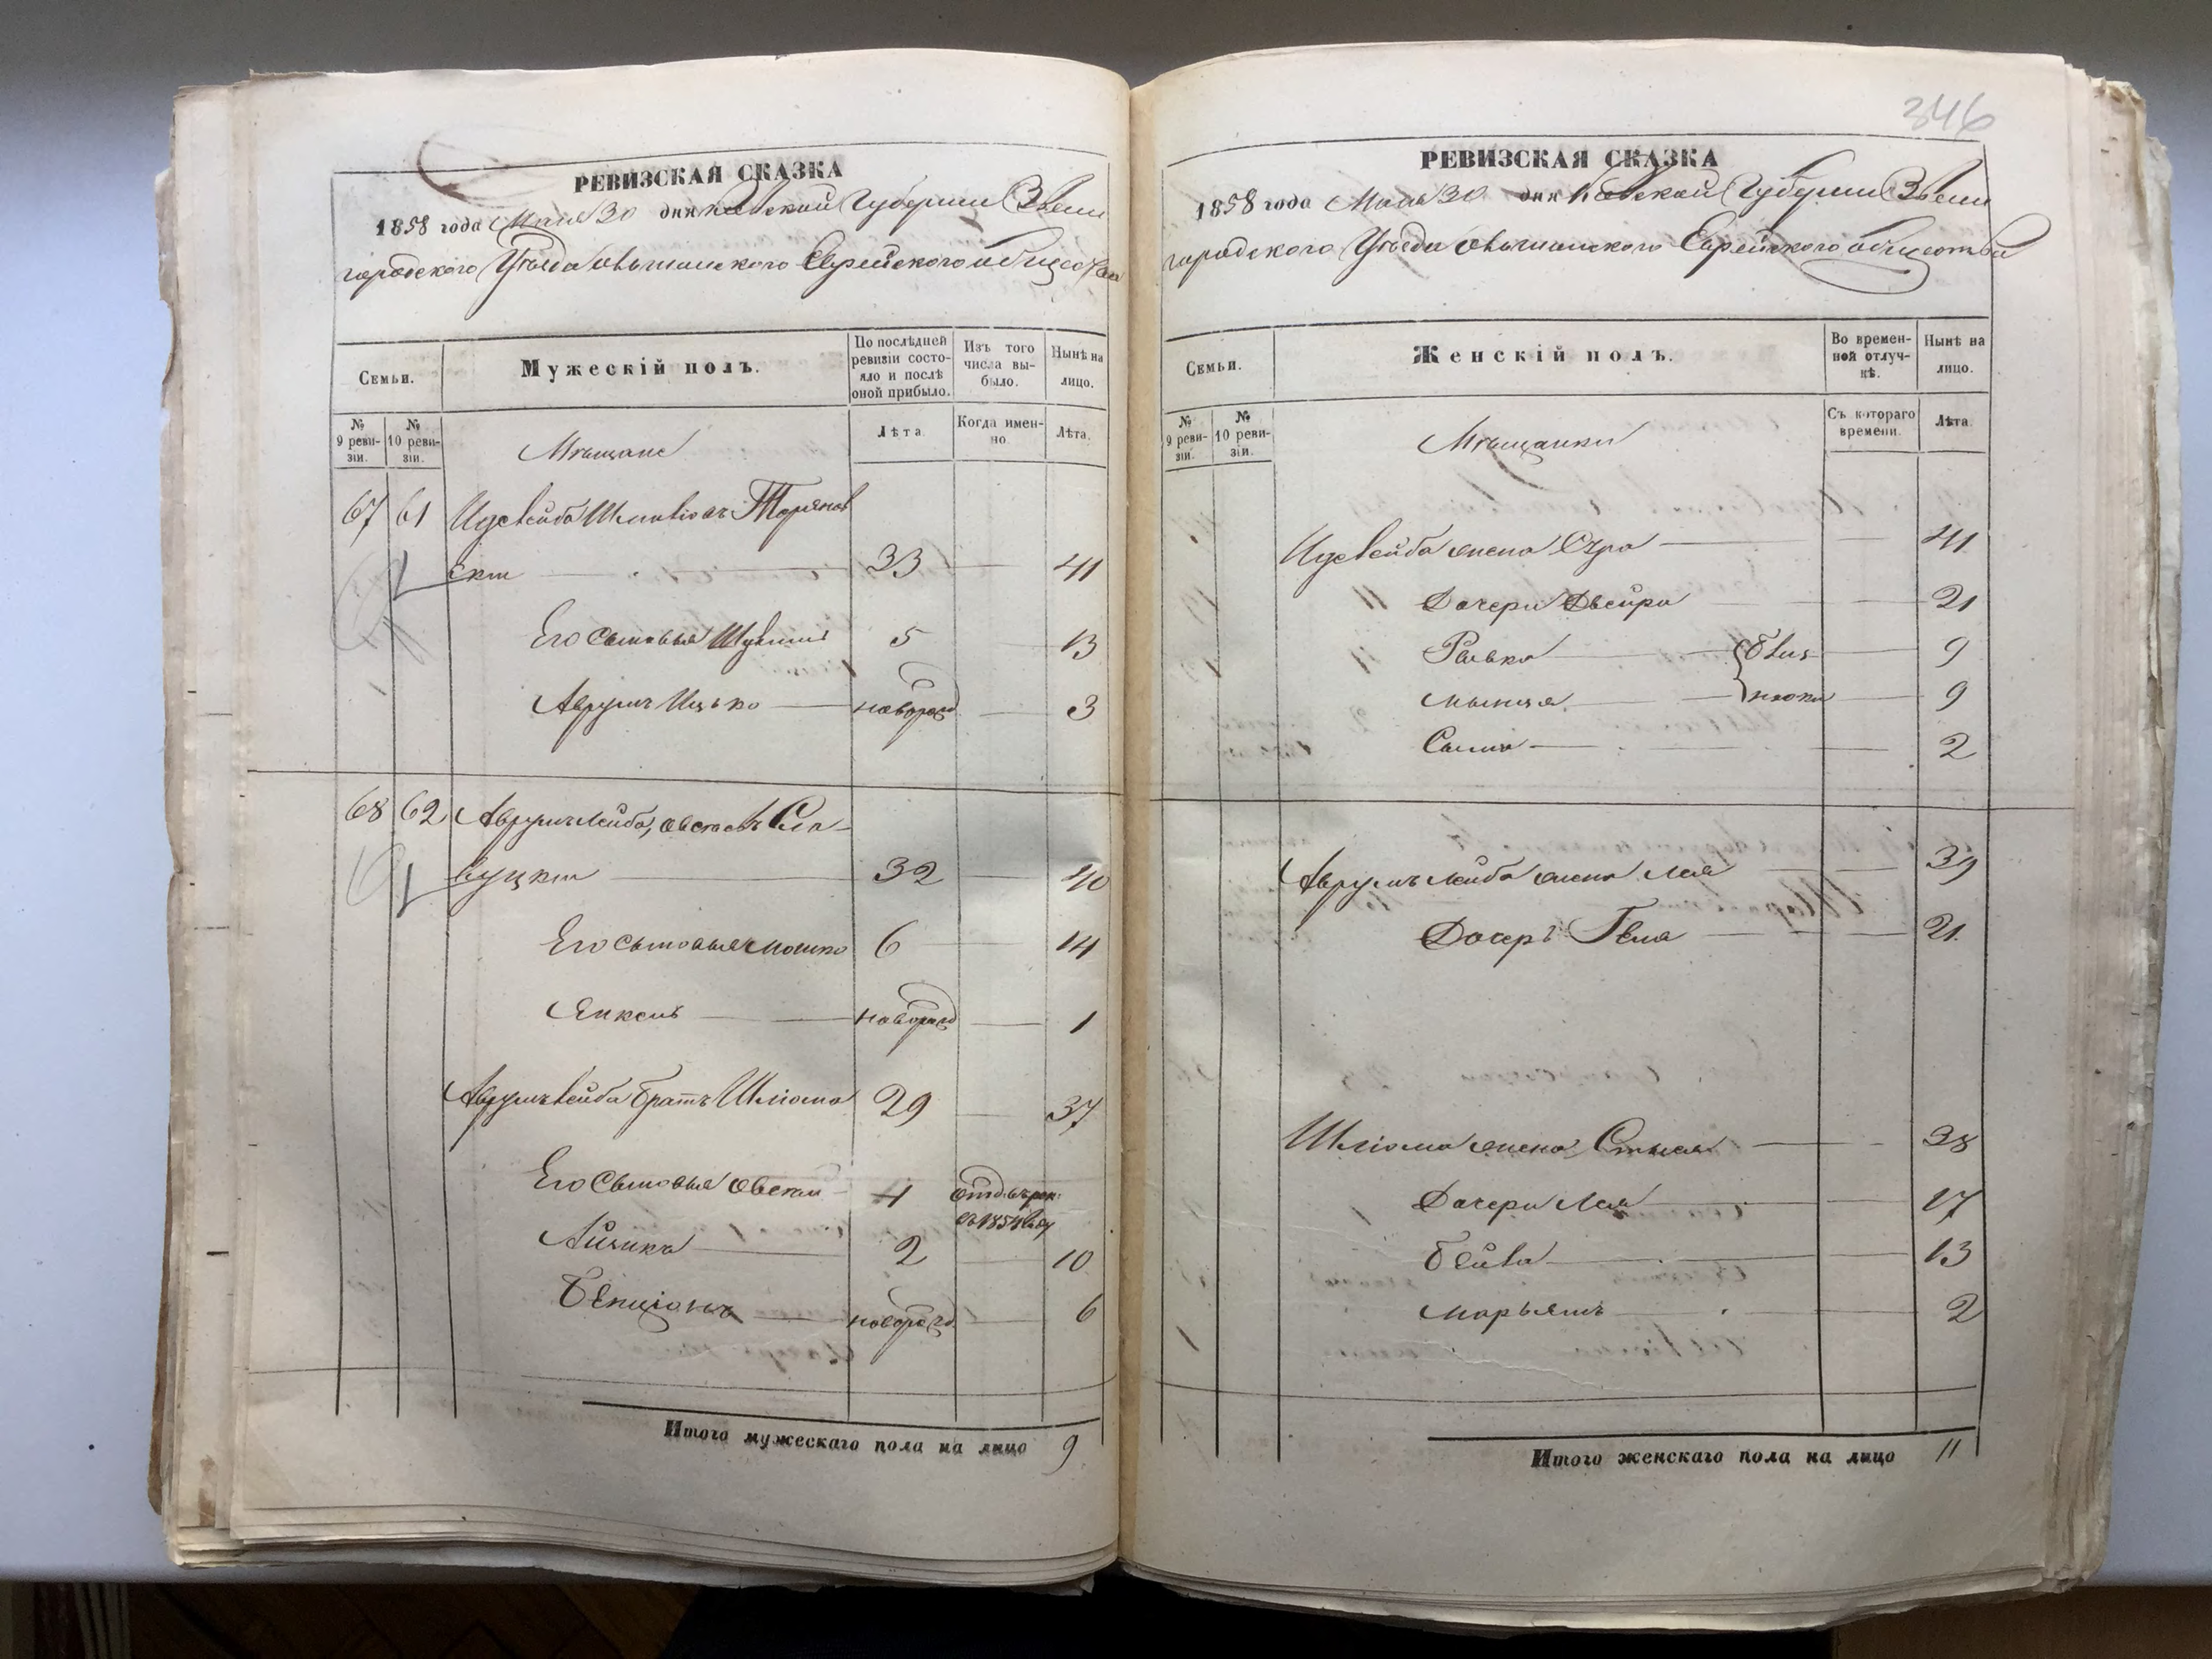 РЕВИЗСКАЯ СКАЗКА
1858 года Мая 30 дня Кіевской Губерніи Звени
городскаго Уѣзда Ольшанского Еврейского общества
Семьи.
Мужескій полъ.
По послѣдней ревизіи состояло и послѣ оной прибыло.
Изъ того числа выбыло.
Нынѣ на лицо.
№ 9 ревизіи.
№ 10 ревизіи.
Мѣщане
Лѣта.
Когда именно.
Лѣта.
67 61 Идслейба Шліовичъ Торянов
скій 33 41
Его сыновья 5 13
Аврумъ Ицько новорожд 3
68 62 Аврумълейба Овсіевъ Сла-
вуцкій 32 40
Его сыновья Мошко 6 14
Янкель новорожд 1
Аврумълейба братъ Шліома 29 37
Его сыновья Овсій 4 отд. въ рек: въ 1854 году
Айзикъ 2 10
Бенціонъ новорожд. 6
Итого мужескаго пола на лицо 9
346
РЕВИЗСКАЯ СКАЗКА
1858 года Мая 30 дня Кіевской Губерніи Звени
городскаго Уѣзда Ольшанского Еврейского общества
Семьи.
Женскій полъ.
Во временной отлучкѣ.
Нынѣ на лицо.
№ 9 ревизіи.
№ 10 ревизіи.
Мѣщанки
Съ котораго времени.
Лѣта.
Идслейба жена Сура 41
Дочери Двейра 21
Ривка близ 9
нюки 9
2
Аврумълейба жена Лея 39
Дочеръ Геня 21
Шліома жена 38
Дочери Лея 17
Бейла 13
Марьямъ 2
Итого женскаго пола на лицо 11